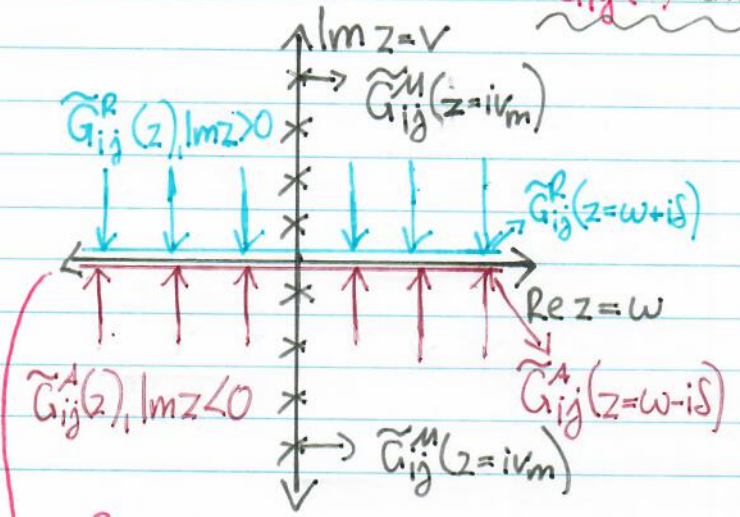 Im z = ν
G̃ᴹᵢⱼ(z=iνₘ)
G̃ᴿᵢⱼ(z), Im z>0
G̃ᴿᵢⱼ(z=ω+iδ)
Re z = ω
G̃ᴬᵢⱼ(z), Im z<0
G̃ᴬᵢⱼ(z=ω-iδ)
G̃ᴹᵢⱼ(z=iνₘ)